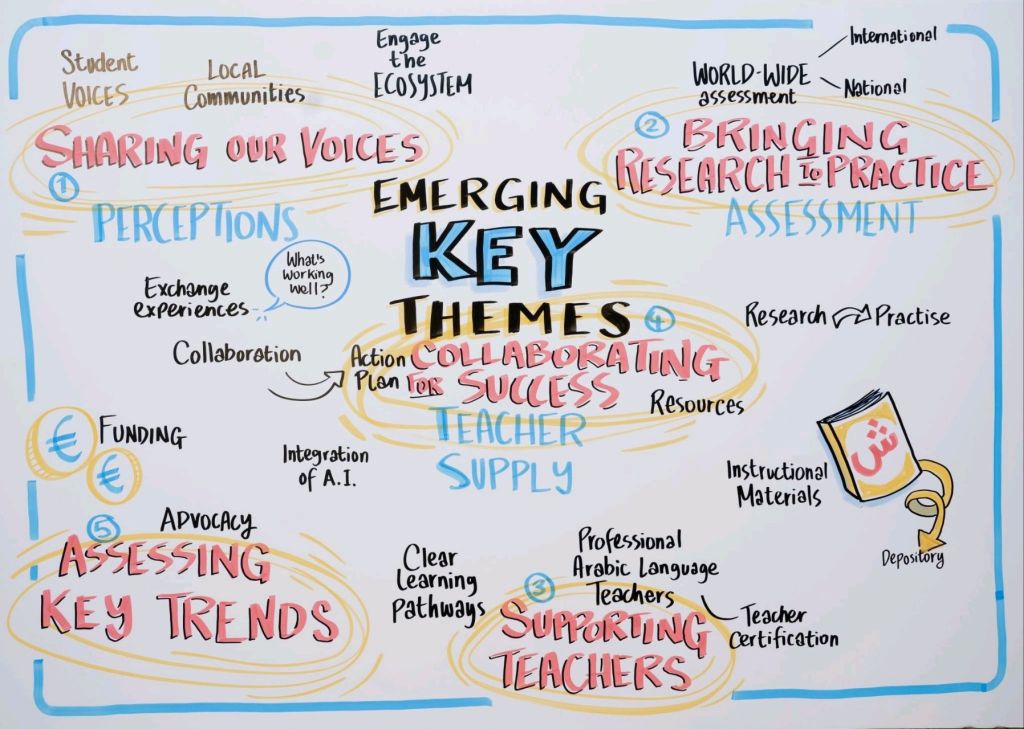 Student
VOICES
LOCAL
Communities
Engage
the
ECOSYSTEM
SHARING OUR VOICES
1
PERCEPTIONS
WORLD-WIDE
assessment
International
National
2
BRINGING
RESEARCH to PRACTICE
ASSESSMENT
EMERGING
KEY
THEMES
Exchange
experiences
What's
working
well?
Collaboration
Action
Plan
4
COLLABORATING
FOR SUCCESS
TEACHER
SUPPLY
Resources
Research
Practise
€
€
FUNDING
Integration
of A.I.
Instructional
Materials
ش
Depository
5
ADVOCACY
ASSESSING
KEY TRENDS
Clear
Learning
Pathways
Professional
Arabic Language
Teachers
Teacher
Certification
3
SUPPORTING
TEACHERS